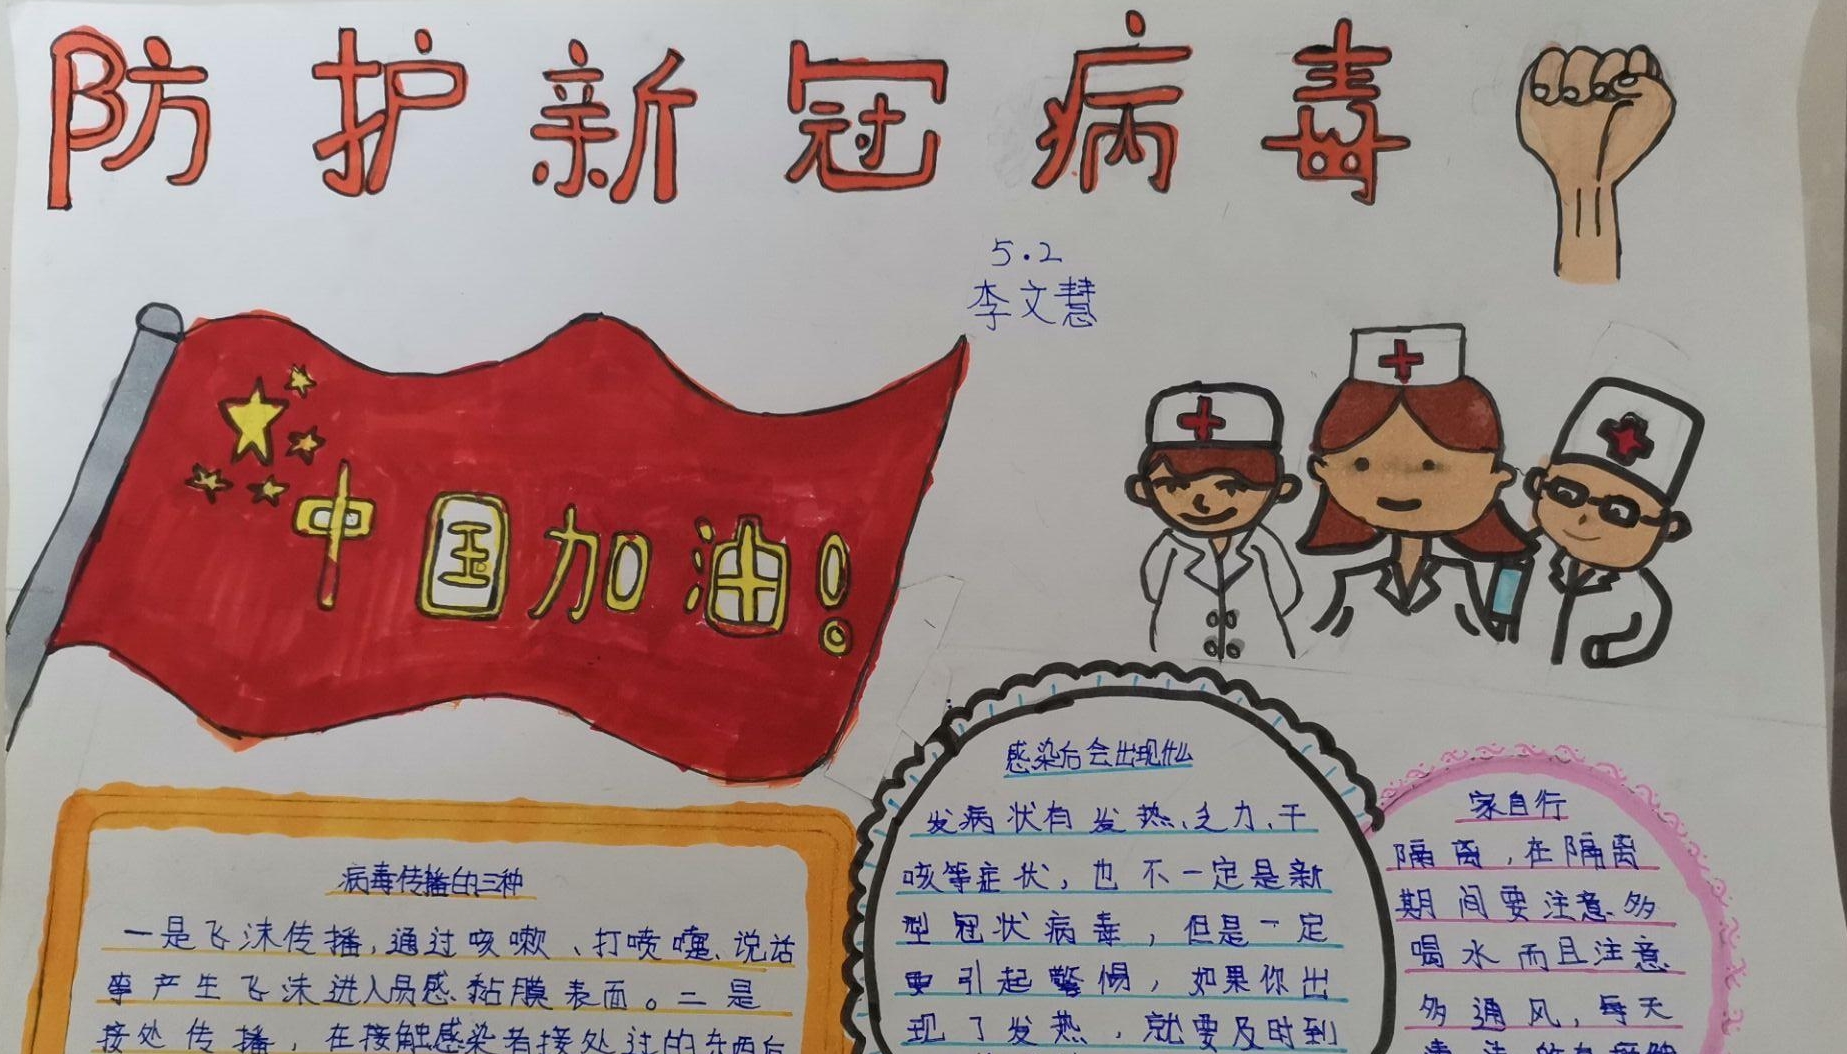 防护新冠病毒
5.2
李文慧
中国加油!
病毒传播的三种
一是飞沫传播,通过咳嗽、打喷嚏、说话
产生飞沫进入易感黏膜表面。二是
接处传播,在接触感染者接处过的东西后
感染后会出现什么
发病状有发热、乏力、干
咳等症状,也不一定是新
型冠状病毒,但是一定
要引起警惕,如果你出
现了发热,就要及时到
家自行
隔离,在隔离
期间要注意多
喝水而且注意
多通风,每天